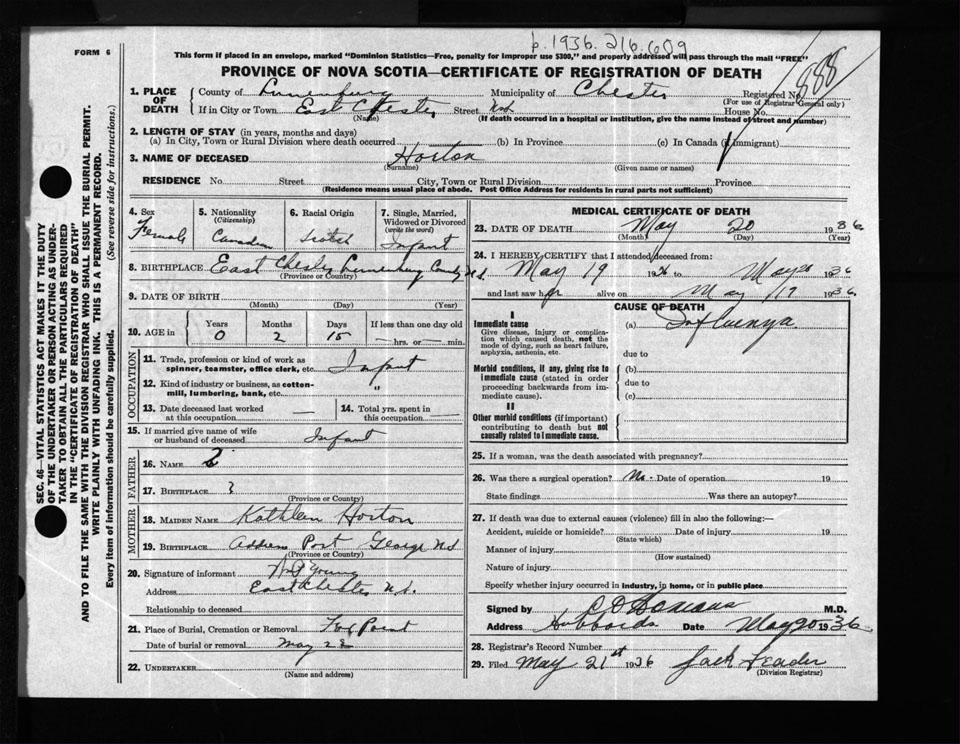 p. 1936. 216.609
FORM 6
This form if placed in an envelope, marked "Dominion Statistics—Free, penalty for improper use $300," and properly addressed will pass through the mail "FREE"
PROVINCE OF NOVA SCOTIA—CERTIFICATE OF REGISTRATION OF DEATH
888
1. PLACE OF DEATH
County of Lunenburg Municipality of Chester Registered No.
(For use of Registrar General only)
If in City or Town East Chester Street N.S. House No.
(Name) (If death occurred in a hospital or institution, give the name instead of street and number)
2. LENGTH OF STAY (in years, months and days)
(a) In City, Town or Rural Division where death occurred (b) In Province (c) In Canada (if immigrant)
3. NAME OF DECEASED Horton
(Surname) (Given name or names)
RESIDENCE No. Street City, Town or Rural Division Province
(Residence means usual place of abode. Post Office Address for residents in rural parts not sufficient)
4. Sex Female
5. Nationality (Citizenship) Canadian
6. Racial Origin Scotch
7. Single, Married, Widowed or Divorced (write the word) Infant
8. BIRTHPLACE East Chester Lunenburg County N.S.
(Province or Country)
9. DATE OF BIRTH
(Month) (Day) (Year)
10. AGE in Years Months Days If less than one day old
0 2 15 — hrs. or — min.
OCCUPATION
11. Trade, profession or kind of work as spinner, teamster, office clerk, etc. Infant
12. Kind of industry or business, as cotton-mill, lumbering, bank, etc. "
13. Date deceased last worked at this occupation —
14. Total yrs. spent in this occupation —
15. If married give name of wife or husband of deceased Infant
FATHER
16. NAME ?
17. BIRTHPLACE ?
(Province or Country)
MOTHER
18. MAIDEN NAME Kathleen Horton
19. BIRTHPLACE Address Port George N.S
(Province or Country)
20. Signature of informant Young
Address East Chester N.S.
Relationship to deceased
21. Place of Burial, Cremation or Removal Fox Point
Date of burial or removal May 22
22. UNDERTAKER
(Name and address)
MEDICAL CERTIFICATE OF DEATH
23. DATE OF DEATH May 20 1936
(Month) (Day) (Year)
24. I HEREBY CERTIFY that I attended deceased from:
May 19 1936 to May 20 1936
and last saw her alive on May 19 1936.
CAUSE OF DEATH
I
Immediate cause
Give disease, injury or complication which caused death, not the mode of dying, such as heart failure, asphyxia, asthenia, etc.
(a) Influenza
due to
Morbid conditions, if any, giving rise to immediate cause (stated in order proceeding backwards from immediate cause).
(b)
due to
(c)
II
Other morbid conditions (if important) contributing to death but not causally related to immediate cause.
25. If a woman, was the death associated with pregnancy?
26. Was there a surgical operation? No. Date of operation 19
State findings Was there an autopsy?
27. If death was due to external causes (violence) fill in also the following:—
Accident, suicide or homicide? Date of injury 19
(State which)
Manner of injury
(How sustained)
Nature of injury
Specify whether injury occurred in industry, in home, or in public place
Signed by M.D.
Address Hubbards Date May 20 1936
28. Registrar's Record Number
29. Filed May 21st 1936 Jack Leader
(Division Registrar)
SEC. 46—VITAL STATISTICS ACT MAKES IT THE DUTY
OF THE UNDERTAKER OR PERSON ACTING AS UNDER-
TAKER TO OBTAIN ALL THE PARTICULARS REQUIRED
IN THE "CERTIFICATE OF REGISTRATION OF DEATH"
AND TO FILE THE SAME WITH THE DIVISION REGISTRAR WHO SHALL ISSUE THE BURIAL PERMIT.
WRITE PLAINLY WITH UNFADING INK. THIS IS A PERMANENT RECORD.
Every item of information should be carefully supplied. (See reverse side for instructions.)